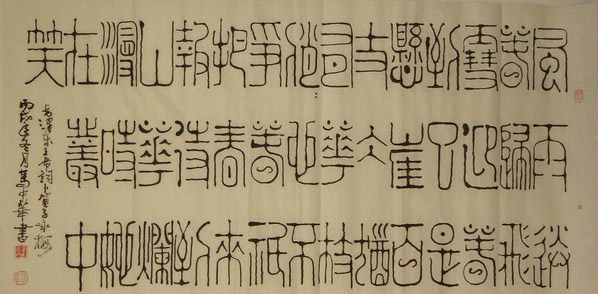 風雨送
春歸飛
雪迎春
到已是
懸崖百
丈冰猶
有華枝
俏也不
爭春祇
把春來
報待到
山華爛
漫時她
在叢中
笑
毛澤東主席詞卜算子咏梅
丙戌年冬月中華書